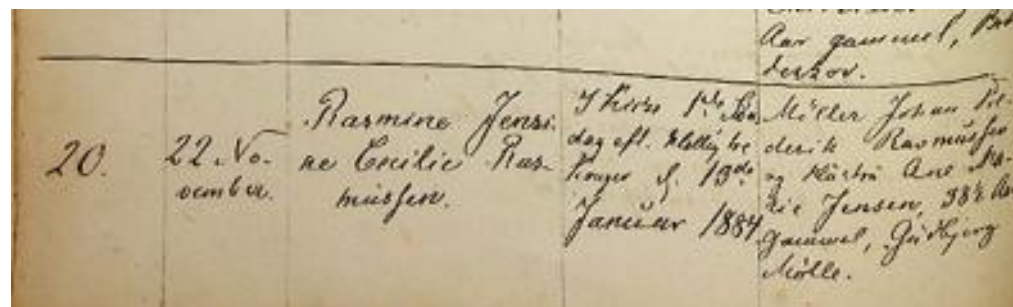 Aar gammel,
derskov.
20.
22. No-
vember.
Rasmine Jensi-
ne Cecilie Ras-
mussen.
I Kirke 1ste Søn
dag eft. Hellig tre
Konger d. 13de
Januar 1884
Møller Johan
derik Rasmussen
og Hustru Ane Ma-
rie Jensen, 38½ Aar
gammel, Gudbjerg
Mølle.